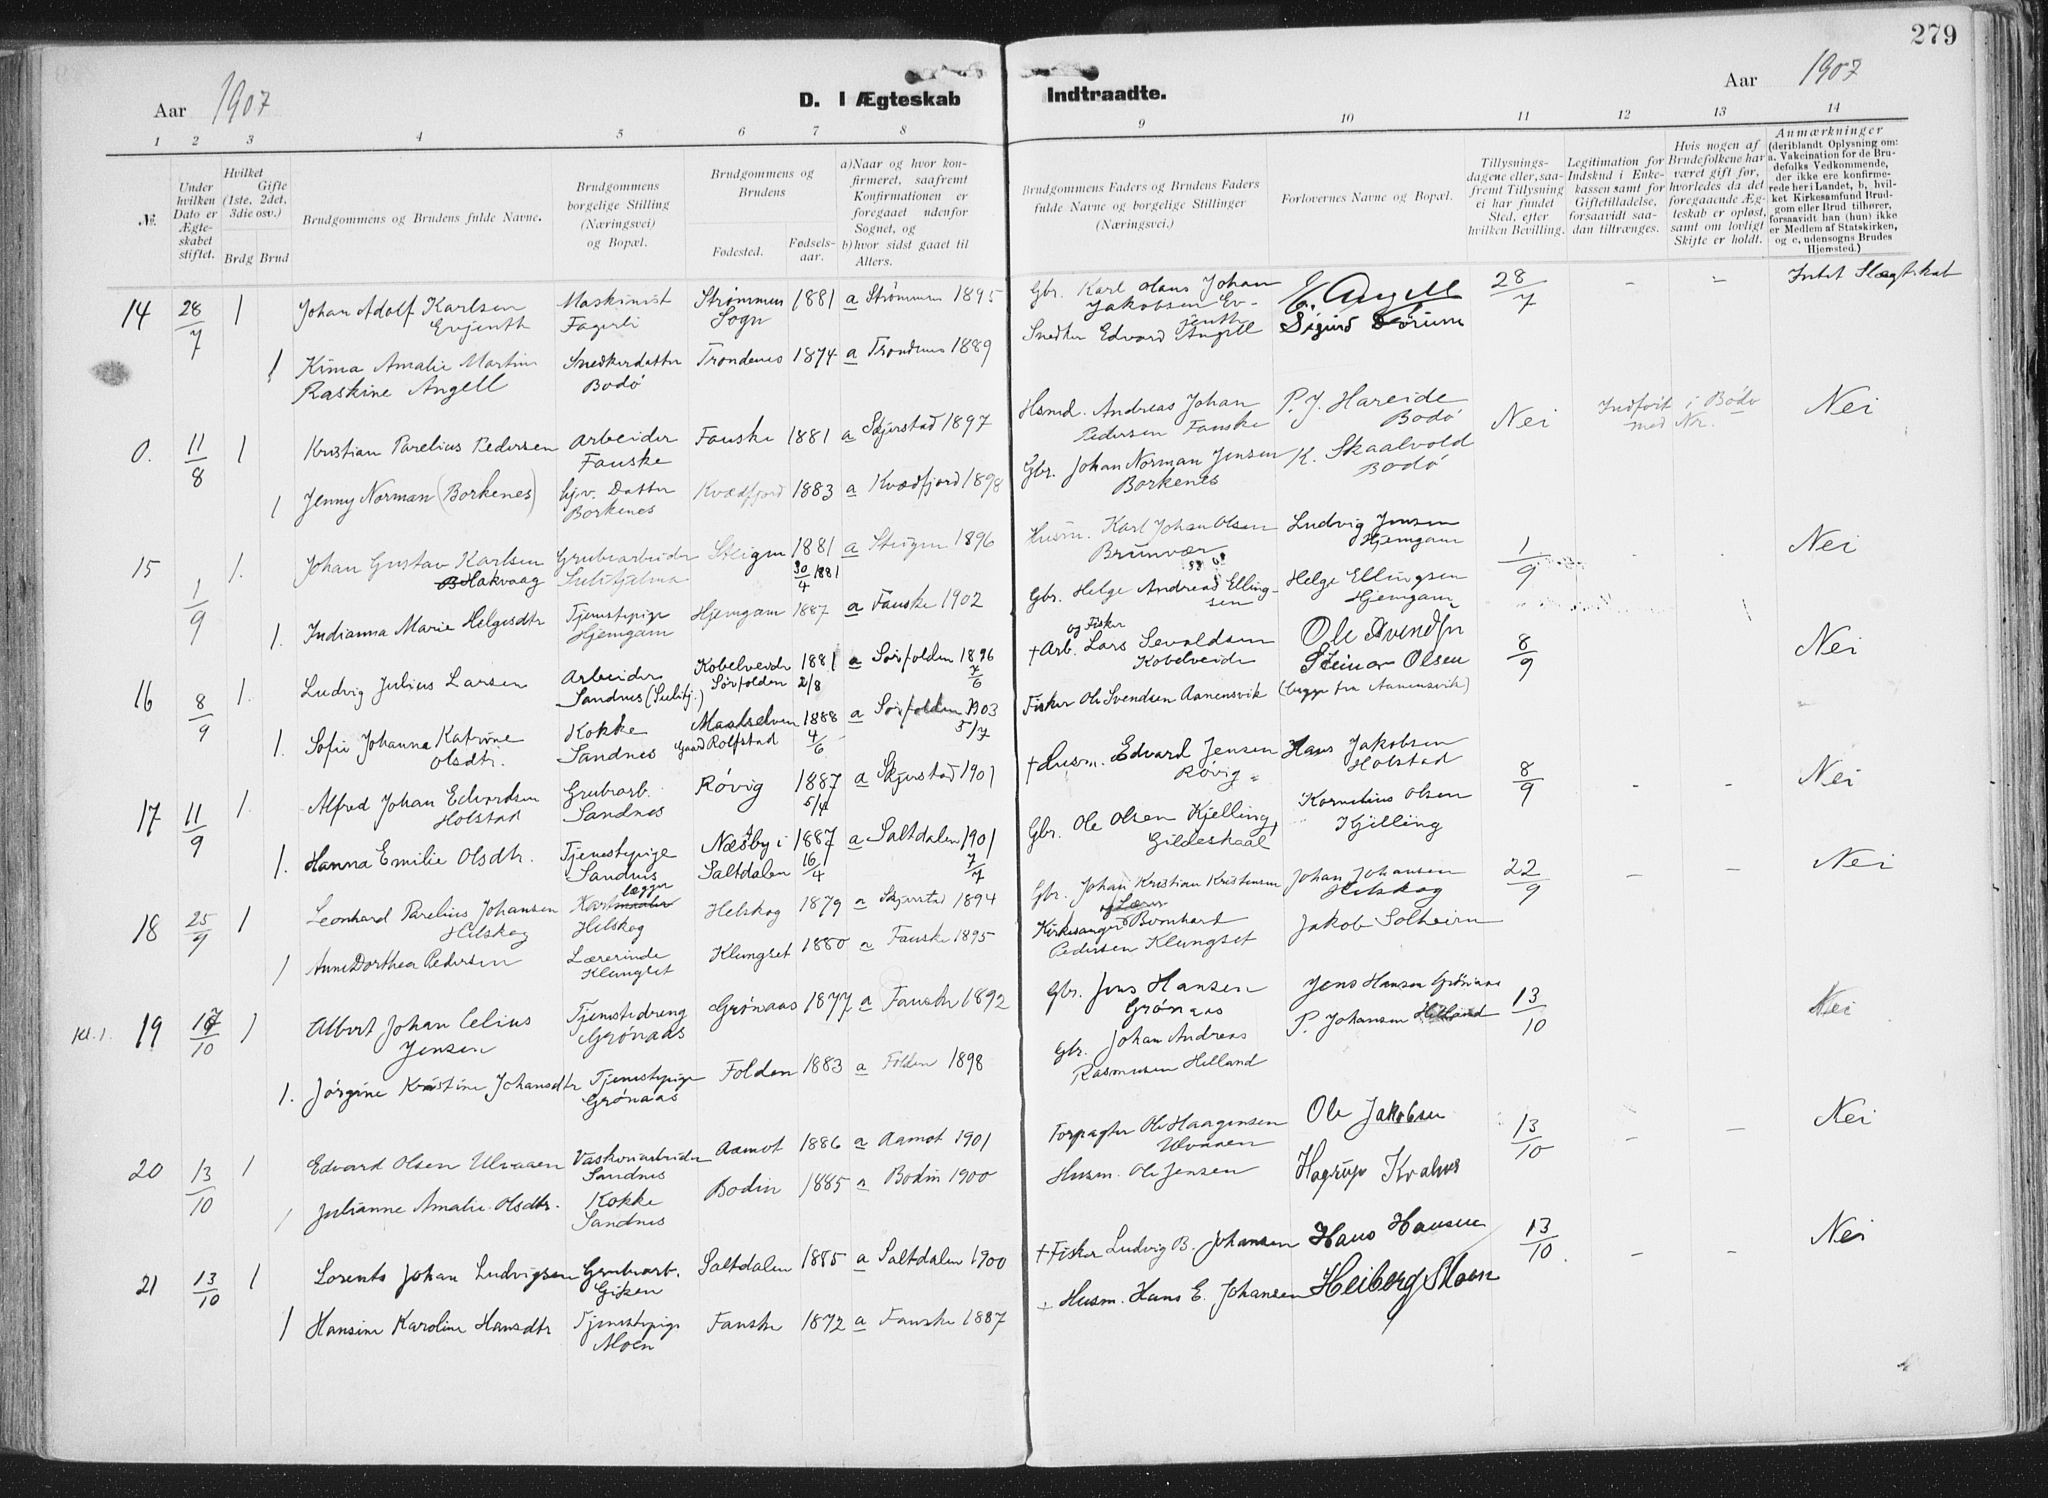 279
Aar 1907
D. I Ægteskab Indtraadte.
Aar 1907
1 2 3 4 5 6 7 8 9 10 11 12 13 14
№.
Under hvilken Dato er Ægteskabet stiftet.
Hvilket Gifte (1ste, 2det, 3die osv.)
Brdg Brud
Brudgommens og Brudens fulde Navne.
Brudgommens borgelige Stilling (Næringsvei) og Bopæl.
Brudgommens og Brudens
Fødested.
Fødselsaar.
a) Naar og hvor konfirmeret, saafremt Konfirmationen er foregaaet udenfor Sognet, og
b) hvor sidst gaaet til Alters.
Brudgommens Faders og Brudens Faders fulde Navne og borgelige Stillinger (Næringsvei.)
Forlovernes Navne og Bopæl.
Tillysningsdagene eller, saafremt Tillysning ei har fundet Sted, efter hvilken Bevilling.
Legitimation for Indskud i Enkekassen samt for Giftetilladelse, forsaavidt saadan tiltrænges.
Hvis nogen af Brudefolkene har været gift før, hvorledes da det foregaaende Ægteskab er opløst, samt om lovligt Skifte er holdt.
Anmærkninger (deriblandt Oplysning om: a. Vakcination for de Brudefolks Vedkommende, der ikke ere konfirmerede her i Landet, b, hvilket Kirkesamfund Brudgom eller Brud tilhører, forsaavidt han (hun) ikke er Medlem af Statskirken, og c, udensogns Brudes Hjemsted.)
14 28/7 1 Johan Adolf Karlsen Evjenth Maskinist Fagerli Strømmen Sogn 1881 a Strømmen 1895 Gbr. Karl Olaus Johan Jakobsen Evjenth E. Angell 28/7 - - Intet Slægtskab
1 Kima Amalie Martine Raskine Angell Snedkerdatter Bodø Trondenes 1874 a Trondenes 1889 Snedker Edvard Angell Sigurd
0. 11/8 1 Kristian Parelius Pedersen Arbeider Fauske Fauske 1881 a Skjerstad 1897 Hsmd. Andreas Johan Pedersen Fauske P. J. Hareide Bodø Nei Indført i Bodø med Nr. Nei
1 Jenny Norman (Borkenes) hjv. Datter Borkenes Kvædfjord 1883 a Kvædfjord 1898 Gbr. Johan Norman Jensen Borkenes K. Skaalvold Bodø
15 1/9 1. Johan Gustav Karlsen Hakvaag Grubearbeider Sulitjelma Steigen 1881 30/4 1881 a Steigen 1896 Husm. Karl Johan Olsen Brunvær Ludvig Jensen Hjemgam 1/9 - - Nei
1. Indianna Marie Helgesdtr Tjenestepige Hjemgam Hjemgam 1887 a Fauske 1902 Gbr. Helge Andreas Ellingsen Helge Ellingsen Hjemgam
16 8/9 1. Ludvig Julius Larsen Arbeider Sandnes (Sulitj.) Kobelveidr Sørfolden 1881 2/8 a Sørfolden 1896 7/6 †Arb. og Fisker Lars Sevaldsen Kobelveide Ole Svendsen 8/9 Nei
1. Sofie Johanna Katrine Olsdtr. Kokke Sandnes Maalselven Gaard Rolfstad 1888 4/6 a Sørfolden 1903 5/7 Fisker Ole Svendsen Aanensvik Steinar Olsen (begge fra Aanensvik)
17 11/9 1. Alfred Johan Edvardsen Holstad Grubearb. Sandnes Røvig 1887 5/4 a Skjerstad 1901 †Husm. Edvard Jensen Røvig Hans Jakobsen Holstad 8/9 - - Nei
1. Hanna Emilie Olsdtr. Tjenestepige Sandnes Næsby i Saltdalen 1887 16/4 a Saltdalen 1901 7/7 Gbr. Ole Olsen Kjelling, Gildeskaal Kornelius Olsen Kjelling
18 25/9 1 Leonhard Parelius Johansen Helskog Helskog Helskog 1879 a Skjerstad 1894 Gbr. Johan Kristian Kristensen Johan Johansen Helskog 22/9 - - Nei
1 Anne Dorthea Pedersen Lærerinde Klungset Klungset 1880 a Fauske 1895 Kirkesanger og Lærer Bernhart Pedersen Klungset Jakob Solheim
Kl. 1. 19 17/10 1 Albert Johan Celius Jensen Tjenestedreng Grønaas Grønaas 1877 a Fauske 1892 Gbr. Jens Hansen Grønaas Jens Hansen Grønaas 13/10 Nei
1. Jørgine Kristine Johansdtr Tjenestepige Grønaas Folden 1883 a Folden 1898 Gbr. Johan Andreas Rasmusen Helland P. Johansen Helland
20 13/10 1 Edvard Olsen Ulvaaen Vaskeriarbeider Sandnes Aamot 1886 a Aamot 1901 Forpagter Ole Haagensen Ulvaaen Ole Jakobsen 13/10 - - Nei
1 Julianne Amalie Olsdtr. Kokke Sandnes Bodin 1885 a Bodin 1900 Husm. Ole Jensen Hagrup Kvalnes
21 13/10 1 Lorents Johan Ludvigsen Grubearb. Giken Saltdalen 1885 a Saltdalen 1900 †Fisker Ludvig B. Johansen Hans Hansen 13/10 - - Nei
1 Hansine Karoline Hansdtr Tjenestepige Moen Fauske 1872 a Fauske 1887 † Husm. Hans E. Johansen Heiberg Moen